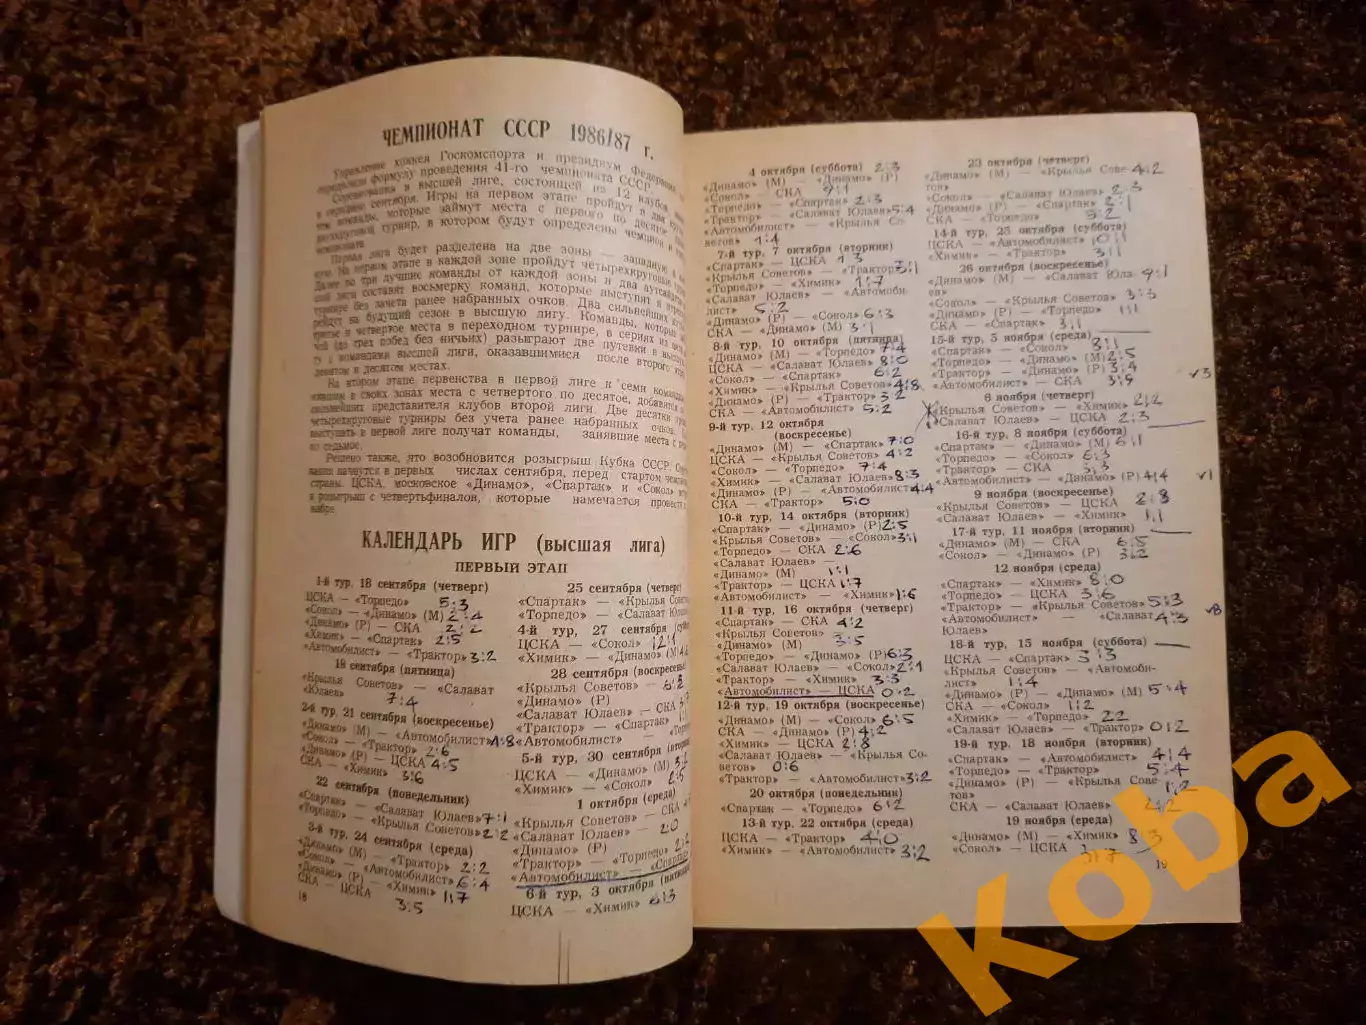 ЧЕМПИОНАТ СССР 1986/87 г.
Управление хоккея Госкомспорта и президиум Федерации
определили формулу проведения 41-го чемпионата СССР.
Соревнования в высшей лиге, состоящей из 12 клубов,
в середине сентября. Игры на первом этапе пройдут в два
команды, которые займут места с первого по десятое,
турнир, в котором будут определены чемпион и
Первая лига будет разделена на две зоны — западную и
На первом этапе в каждой зоне пройдут четырехкруговые
Далее по три лучшие команды от каждой зоны и два аутсайдера
лиги составят восьмерку команд, которые выступят в
турнире без зачета ранее набранных очков. Два сильнейших
на будущий сезон в высшую лигу. Команды, которые
и четвертое места в переходном турнире, в сериях из
(до трех побед без ничьих) разыграют две путевки в
с командами высшей лиги, оказавшимися после второго
девятом и десятом местах.
На втором этапе первенства в первой лиге к семи командам,
в своих зонах места с четвертого по десятое, добавятся
сильнейших представителя клубов второй лиги. Две десятки
четырехкруговые турниры без учета ранее набранных очков.
выступать в первой лиге получат команды, занявшие места с
по седьмое.
Решено также, что возобновится розыгрыш Кубка СССР.
начнутся в первых числах сентября, перед стартом
страны. ЦСКА, московское «Динамо», «Спартак» и «Сокол»
в розыгрыш с четвертьфиналов, которые намечается провести
КАЛЕНДАРЬ ИГР (высшая лига)
ПЕРВЫЙ ЭТАП
1-й тур, 18 сентября (четверг)
ЦСКА — «Торпедо» 5:3
«Сокол» — «Динамо» (М) 2:4
«Динамо» (Р) — СКА 2:2
«Химик» — «Спартак» 2:5
«Автомобилист» — «Трактор» 3:2
19 сентября (пятница)
«Крылья Советов» — «Салават
Юлаев» 7:4
2-й тур, 21 сентября (воскресенье)
«Динамо» (М) — «Автомобилист» 4:8
«Сокол» — «Трактор» 2:6
«Динамо» (Р) — ЦСКА 4:5
СКА — «Химик» 3:6
22 сентября (понедельник)
«Спартак» — «Салават Юлаев» 7:1
«Торпедо» — «Крылья Советов» 2:2
3-й тур, 24 сентября (среда)
«Динамо» (М) — «Трактор» 2:2
«Сокол» — «Автомобилист» 6:4
«Динамо» (Р) — «Химик» 1:7
СКА — ЦСКА 3:5
18
25 сентября (четверг)
«Спартак» — «Крылья
«Торпедо» — «Салават
4-й тур, 27 сентября
ЦСКА — «Сокол» 12:1
«Химик» — «Динамо» (М)
28 сентября (воскресенье)
«Крылья Советов» —
«Динамо» (Р)
«Салават Юлаев» — СКА
«Трактор» — «Спартак»
«Автомобилист» —
5-й тур, 30 сентября
ЦСКА — «Динамо» (М)
«Химик» — «Сокол» 2:5
1 октября (среда)
«Крылья Советов» — СКА
«Салават Юлаев» — 2:0
«Динамо» (Р)
«Трактор» — «Торпедо» 2:2
«Автомобилист» — «Спартак»
6-й тур, 3 октября
ЦСКА — «Химик» 6:3
4 октября (суббота) 2:3
«Динамо» (М) — «Динамо» (Р)
«Сокол» — СКА 9:1
«Торпедо» — «Спартак» 2:3
«Трактор» — «Салават Юлаев» 5:4
«Автомобилист» — «Крылья Со-
ветов» 1:4
7-й тур, 7 октября (вторник)
«Спартак» — ЦСКА 1:3
«Крылья Советов» — «Трактор» 3:1
«Торпедо» — «Химик» 1:7
«Салават Юлаев» — «Автомоби-
лист» 5:2
«Динамо» (Р) — «Сокол» 6:3
СКА — «Динамо» (М) 3:1
8-й тур, 10 октября (пятница)
«Динамо» (М) — «Торпедо» 7:4
ЦСКА — «Салават Юлаев» 8:0
«Сокол» — «Спартак» 6:2
«Химик» — «Крылья Советов» 4:8
«Динамо» (Р) — «Трактор» 3:2
СКА — «Автомобилист» 5:2
9-й тур, 12 октября
(воскресенье)
«Динамо» (М) — «Спартак» 7:0
ЦСКА — «Крылья Советов» 4:2
«Сокол» — «Торпедо» 7:4
«Химик» — «Салават Юлаев» 8:3
«Динамо» (Р) — «Автомобилист» 4:4
СКА — «Трактор» 5:0
10-й тур, 14 октября (вторник)
«Спартак» — «Динамо» (Р) 2:5
«Крылья Советов» — «Сокол» 3:1
«Торпедо» — СКА 2:6
«Салават Юлаев» —
«Динамо» (М) 1:1
«Трактор» — ЦСКА 1:7
«Автомобилист» — «Химик» 1:6
11-й тур, 16 октября (четверг)
«Спартак» — СКА 4:2
«Крылья Советов» —
«Динамо» (М) 3:5
«Торпедо» — «Динамо» (Р) 6:3
«Салават Юлаев» — «Сокол» 2:1
«Трактор» — «Химик» 3:3
«Автомобилист» — ЦСКА 0:2
12-й тур, 19 октября (воскресенье)
«Динамо» (М) — «Сокол» 6:5
СКА — «Динамо» (Р) 4:2
«Химик» — ЦСКА 2:8
«Салават Юлаев» — «Крылья Со-
ветов» 0:6
«Трактор» — «Автомобилист» 3:2
20 октября (понедельник)
«Спартак» — «Торпедо» 6:2
13-й тур, 22 октября (среда)
ЦСКА — «Трактор» 4:0
«Химик» — «Автомобилист» 3:2
23 октября (четверг)
«Динамо» (М) — «Крылья Сове- 4:2
тов»
«Сокол» — «Салават Юлаев» 2:3
«Динамо» (Р) — «Спартак» 2:1
СКА — «Торпедо» 5:2
14-й тур, 25 октября (суббота)
ЦСКА — «Автомобилист» 10:1
«Химик» — «Трактор» 3:1
26 октября (воскресенье)
«Динамо» (М) — «Салават Юла- 9:1
ев»
«Сокол» — «Крылья Советов» 3:3
«Динамо» (Р) — «Торпедо» 1:1
СКА — «Спартак» 3:1
15-й тур, 5 ноября (среда)
«Спартак» — «Сокол» 3:1
«Торпедо» — «Динамо» (М) 2:5
«Трактор» — «Динамо» (Р) 3:4
«Автомобилист» — СКА 3:9
v3
6 ноября (четверг)
«Крылья Советов» — «Химик» 2:2
«Салават Юлаев» — ЦСКА 2:3
16-й тур, 8 ноября (суббота)
«Спартак» — «Динамо» (М) 6:1
«Торпедо» — «Сокол» 6:3
«Трактор» — СКА 3:3
«Автомобилист» — «Динамо» (Р) 4:4
v1
9 ноября (воскресенье)
«Крылья Советов» — ЦСКА 2:8
«Салават Юлаев» — «Химик» 1:1
17-й тур, 11 ноября (вторник)
«Динамо» (М) — СКА 6:5
«Сокол» — «Динамо» (Р) 3:2
12 ноября (среда)
«Спартак» — «Химик» 8:0
«Торпедо» — ЦСКА 3:6
«Трактор» — «Крылья Советов» 5:3
«Автомобилист» — «Салават 4:3
Юлаев»
v8
18-й тур, 15 ноября (суббота)
ЦСКА — «Спартак» 3:3
«Крылья Советов» — «Автомоби-
лист» 1:4
«Динамо» (Р) — «Динамо» (М) 5:4
СКА — «Сокол» 1:2
«Химик» — «Торпедо» 2:2
«Салават Юлаев» — «Трактор» 0:2
19-й тур, 18 ноября (вторник)
«Спартак» — «Автомобилист» 4:4
«Торпедо» — «Трактор» 5:4
«Динамо» (Р) — «Крылья Сове-
тов» 1:2
СКА — «Салават Юлаев» 2:2
19 ноября (среда)
«Динамо» (М) — «Химик» 8:3
«Сокол» — ЦСКА 3:7
19
Koba